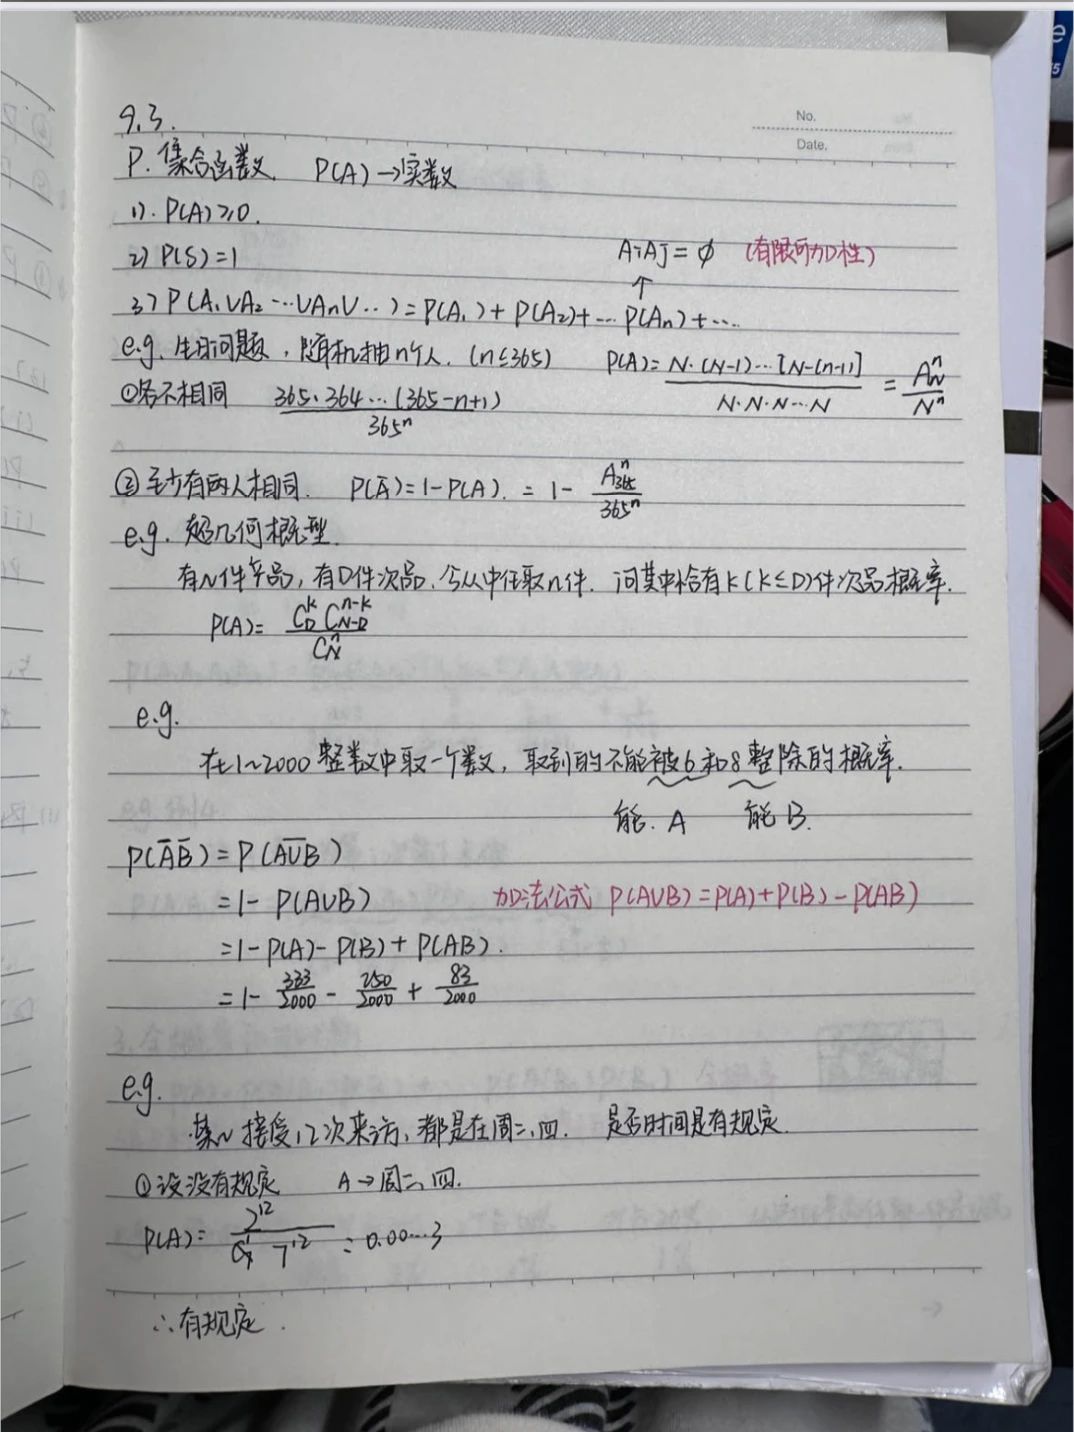 9.3.
No.
Date.
P. 集合函数. P(A)→实数
1). P(A)≥0.
2) P(S)=1
AiAj=φ (有限可加性)
↑
3) P(A₁∪A₂…∪An∪…)=P(A₁)+P(A₂)+…P(An)+…
e.g. 生日问题, 随机抽n个人. (n≤365)
P(A)= N·(N-1)…[N-(n-1)] / N·N·N…N = A_N^n / N^n
①各不相同 365·364…(365-n+1) / 365ⁿ
②至少有两人相同. P(Ā)=1-P(A). = 1- A_365^n / 365ⁿ
e.g. 超几何概型.
有N件产品, 有D件次品. 今从中任取n件. 问其中恰有k(k≤D)件次品概率.
P(A)= C_D^k C_{N-D}^{n-k} / C_N^n
e.g.
在1~2000整数中取一个数, 取到的不能被6和8整除的概率.
能. A 能B.
P(A̅ B̅)=P(A̅∪̅B̅)
=1- P(A∪B) 加法公式 P(A∪B)=P(A)+P(B)-P(AB)
=1-P(A)-P(B)+P(AB).
=1- 333/2000 - 250/2000 + 83/2000
e.g.
接受12次来访, 都是在周二、四. 是否时间是有规定.
①设没有规定 A→周二、四.
P(A)= 2¹² / 7¹² = 0.00…3
∴有规定.